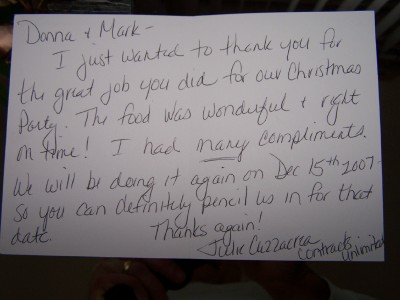 Donna + Mark -
I just wanted to thank you for
the great job you did for our Christmas
Party. The food was wonderful + right
on time! I had many compliments.
We will be doing it again on Dec 15th 2007-
so you can definitely pencil us in for that
date. Thanks again!
Julie Cuzzacrea
Contracts Unlimited